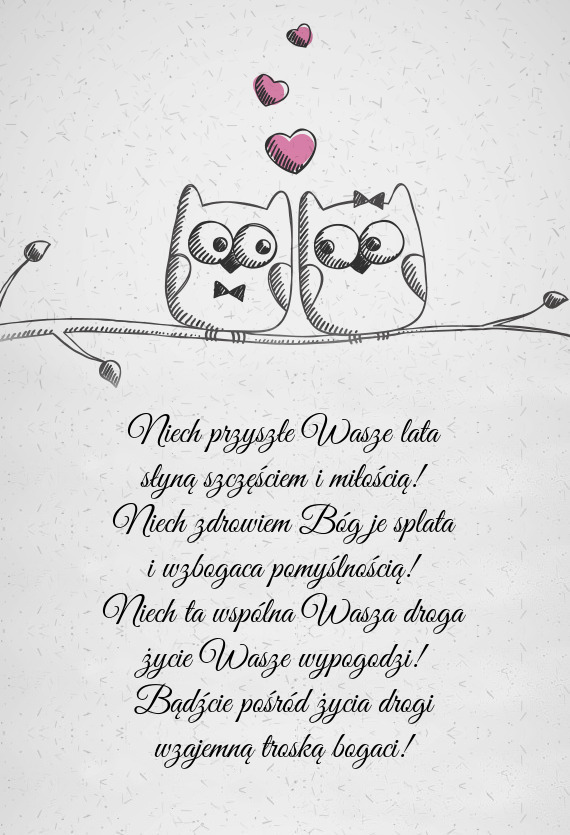 Niech przyszłe Wasze lata
słyną szczęściem i miłością!
Niech zdrowiem Bóg je splata
i wzbogaca pomyślnością!
Niech ta wspólna Wasza droga
życie Wasze wypogodzi!
Bądźcie pośród życia drogi
wzajemną troską bogaci!